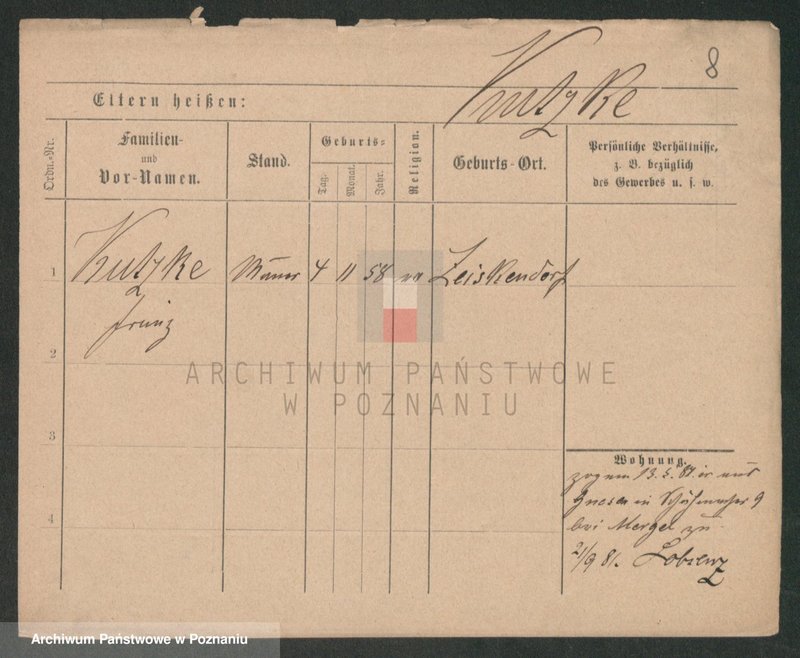 8
Kutzke
Eltern heißen:
Ordn.-Nr.
Familien-
und
Vor-Namen.
Stand.
Geburts-
Tag.
Monat.
Jahr.
Religion.
Geburts-Ort.
Persönliche Verhältnisse,
z. B. bezüglich
des Gewerbes u. s. w.
1
Kutzke
4
11
58
ev
Zeiskendorf
Franz
2
3
4
Wohnung.
13. 5. 81. aus
Gnesen in 9
bei Mergel zu
21/9 81. Lobsenz
ARCHIWUM PAŃSTWOWE
W POZNANIU
Archiwum Państwowe w Poznaniu